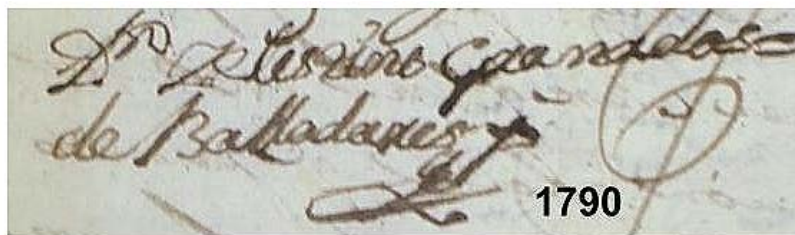 Dn Zelestino Granados=
de Balladares
1790